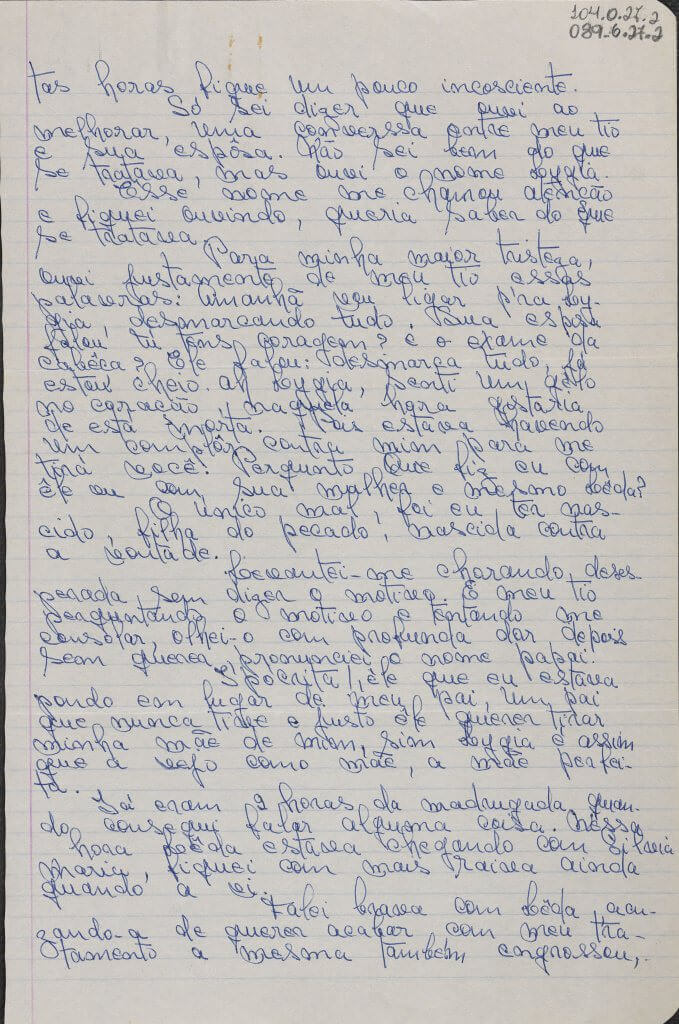 104.0.27.2
089-6.27-2
tas horas, fique um pouco incosciente.
Só sei dizer que ouvi ao
melhorar, uma converssa entre meu tio
e sua espôsa. Não sei bem do que
se tratava, mas ouvi o nome Lygia.
Esse nome me chamou atenção
e fiquei ouvindo, queria saber do que
se tratava.
Para minha maior tristeza,
ouvi justamente de meu tio essas
palavras: amanhã vou ligar p'ra Ly-
gia, desmarcando tudo. Sua esposa
falou tu tens coragem? e o exame da
cabêça? Êle falou: desmarca tudo, já
estou cheio. Ah Lygia, senti um gelo
no coração, naquela hora gostaria
de está morta. Pois estava havendo
um complôr contra mim para me
tirá você. Pergunto que fiz eu com
êle ou com sua mulher e mesmo Lêda?
O único mal, foi eu ter nas-
cido, filha do pecado, nascida contra
a vontade.
Levantei-me chorando, deses-
perada, sem dizer o motivo. E meu tio
perguntando o motivo e tentando me
consolar, olhei-o com profunda dor, depois
sem querer, pronunciei o nome papai.
Ipocrita!, êle que eu estava
pondo em lugar de meu pai, um pai
que nunca tive e justo êle querer tirar
minha mãe de mim, sim Lygia é assim
que a vejo como mãe, a mãe perfei-
ta.
Já eram 2 horas da madrugada, quan-
do consegui falar alguma coisa. Nessa
hora Lêda estava chegando com Silvia
Maria, fiquei com mais raiva ainda
quando a vi.
Falei brava com Lêda acu-
zando-a de querer acabar com meu tra-
tamento a mesma também engrossou,